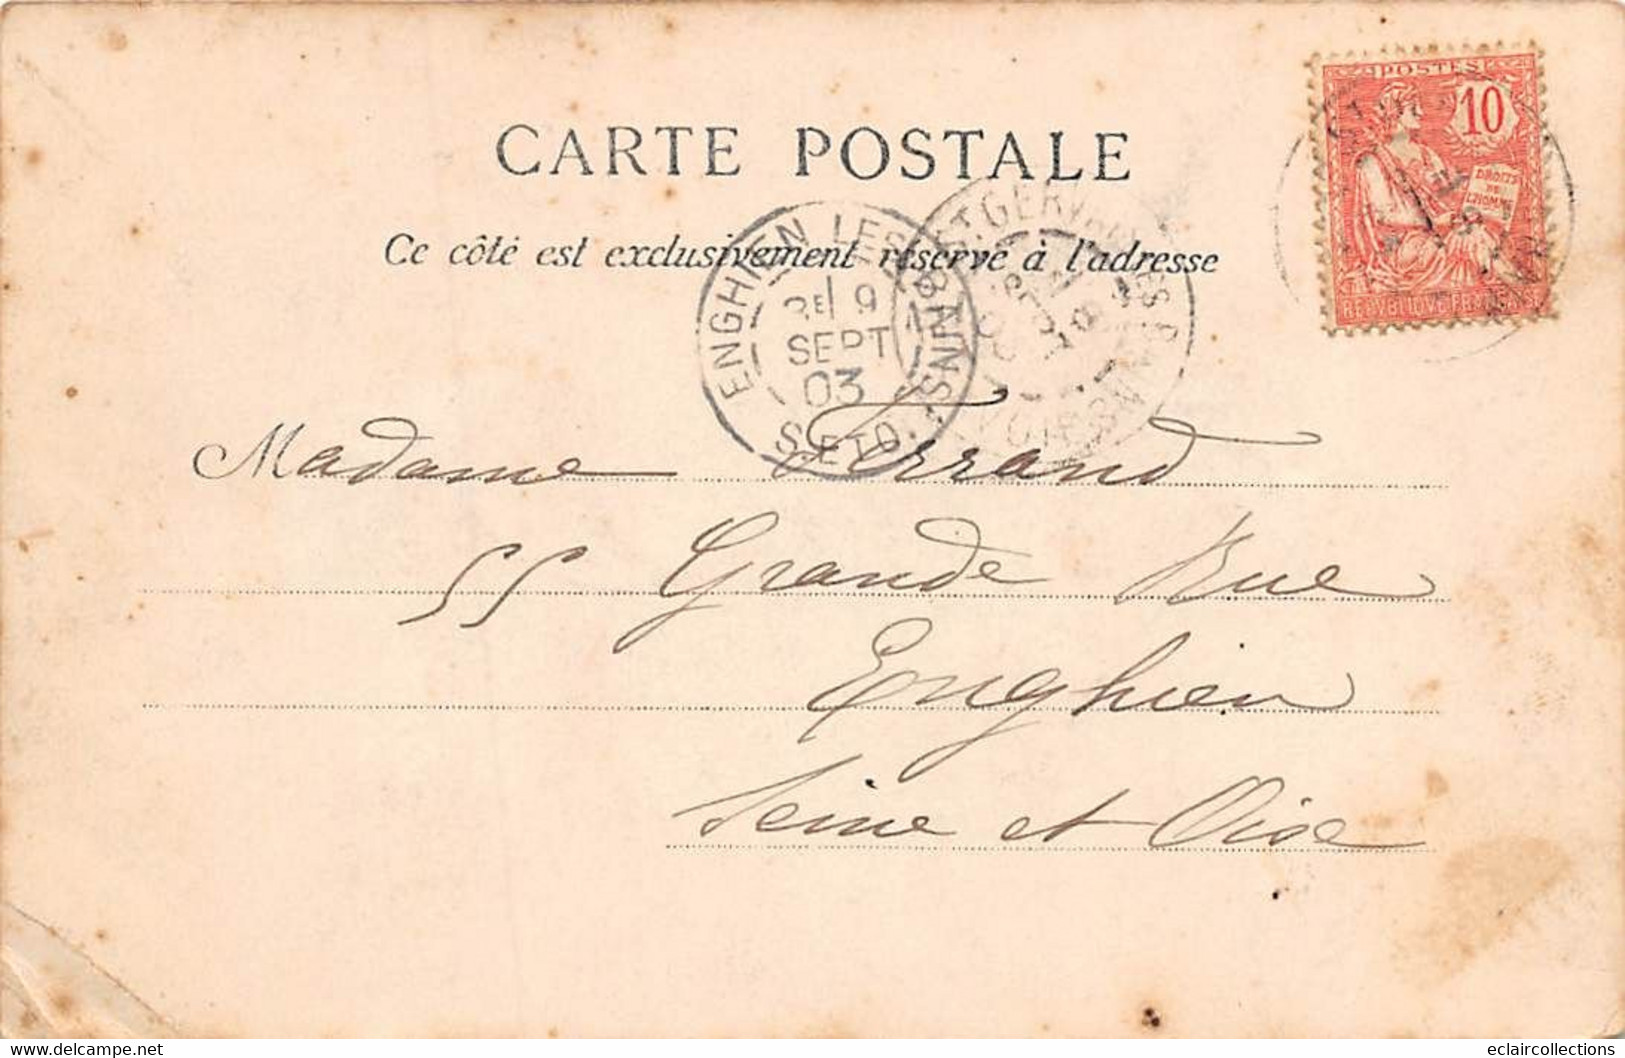 CARTE POSTALE
Ce côté est exclusivement réservé à l'adresse
POSTES
10
DROITS
DE
L'HOMME
REPVBLIQVE FRANÇAISE
ENGHIEN LES BAINS
9
SEPT
03
S. ET O.
ST GERVAIS LES BAINS
Madame Ferrand
55 Grande Rue
Enghien
Seine et Oise
eclaircollections